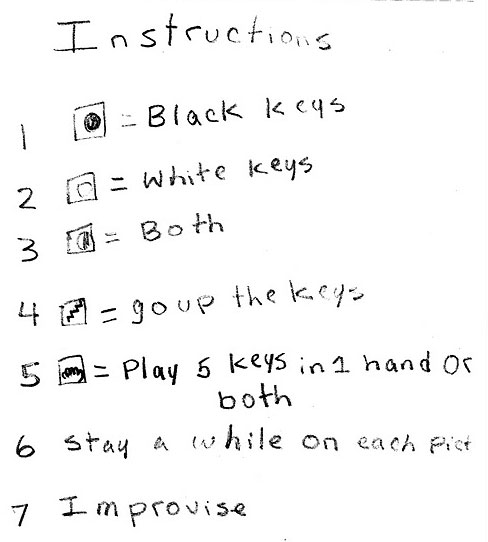 Instructions
1 = Black keys
2 = White keys
3 = Both
4 = go up the keys
5 = Play 5 keys in 1 hand or
both
6 stay a while on each pict
7 Improvise